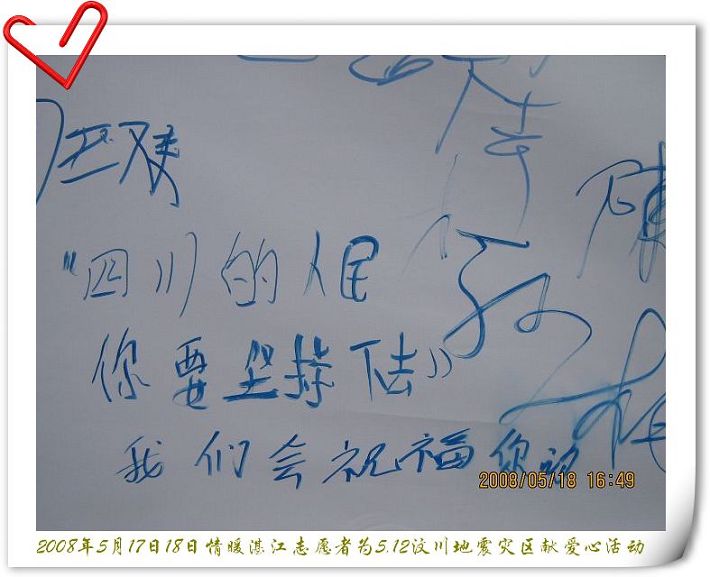 "四川的人民
你要坚持下去"
我们会祝福你
2008/05/18 16:49
2008年5月17日18日情暖湛江志愿者为5.12汶川地震灾区献爱心活动